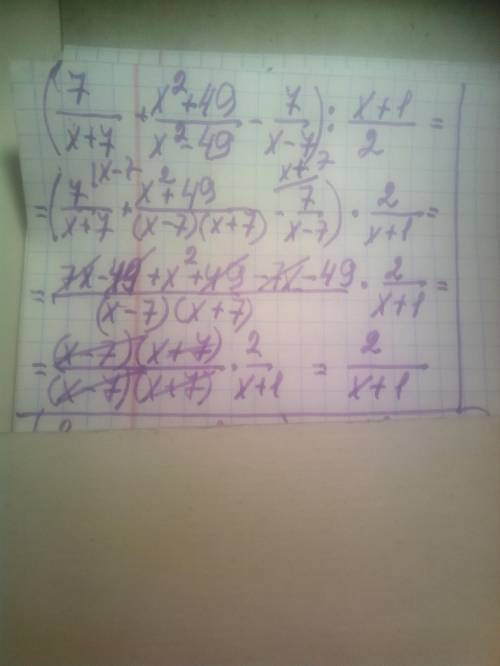 (7/(x+7) + (x²+49)/(x²-49) - 7/(x-7)) : (x+1)/2 =
= (7/(x+7) |x-7 + (x²+49)/((x-7)(x+7)) - 7/(x-7) x+7) · 2/(x+1) =
= (7x-49+x²+49-7x-49)/((x-7)(x+7)) · 2/(x+1) =
= ((x-7)(x+7))/((x-7)(x+7)) · 2/(x+1) = 2/(x+1)